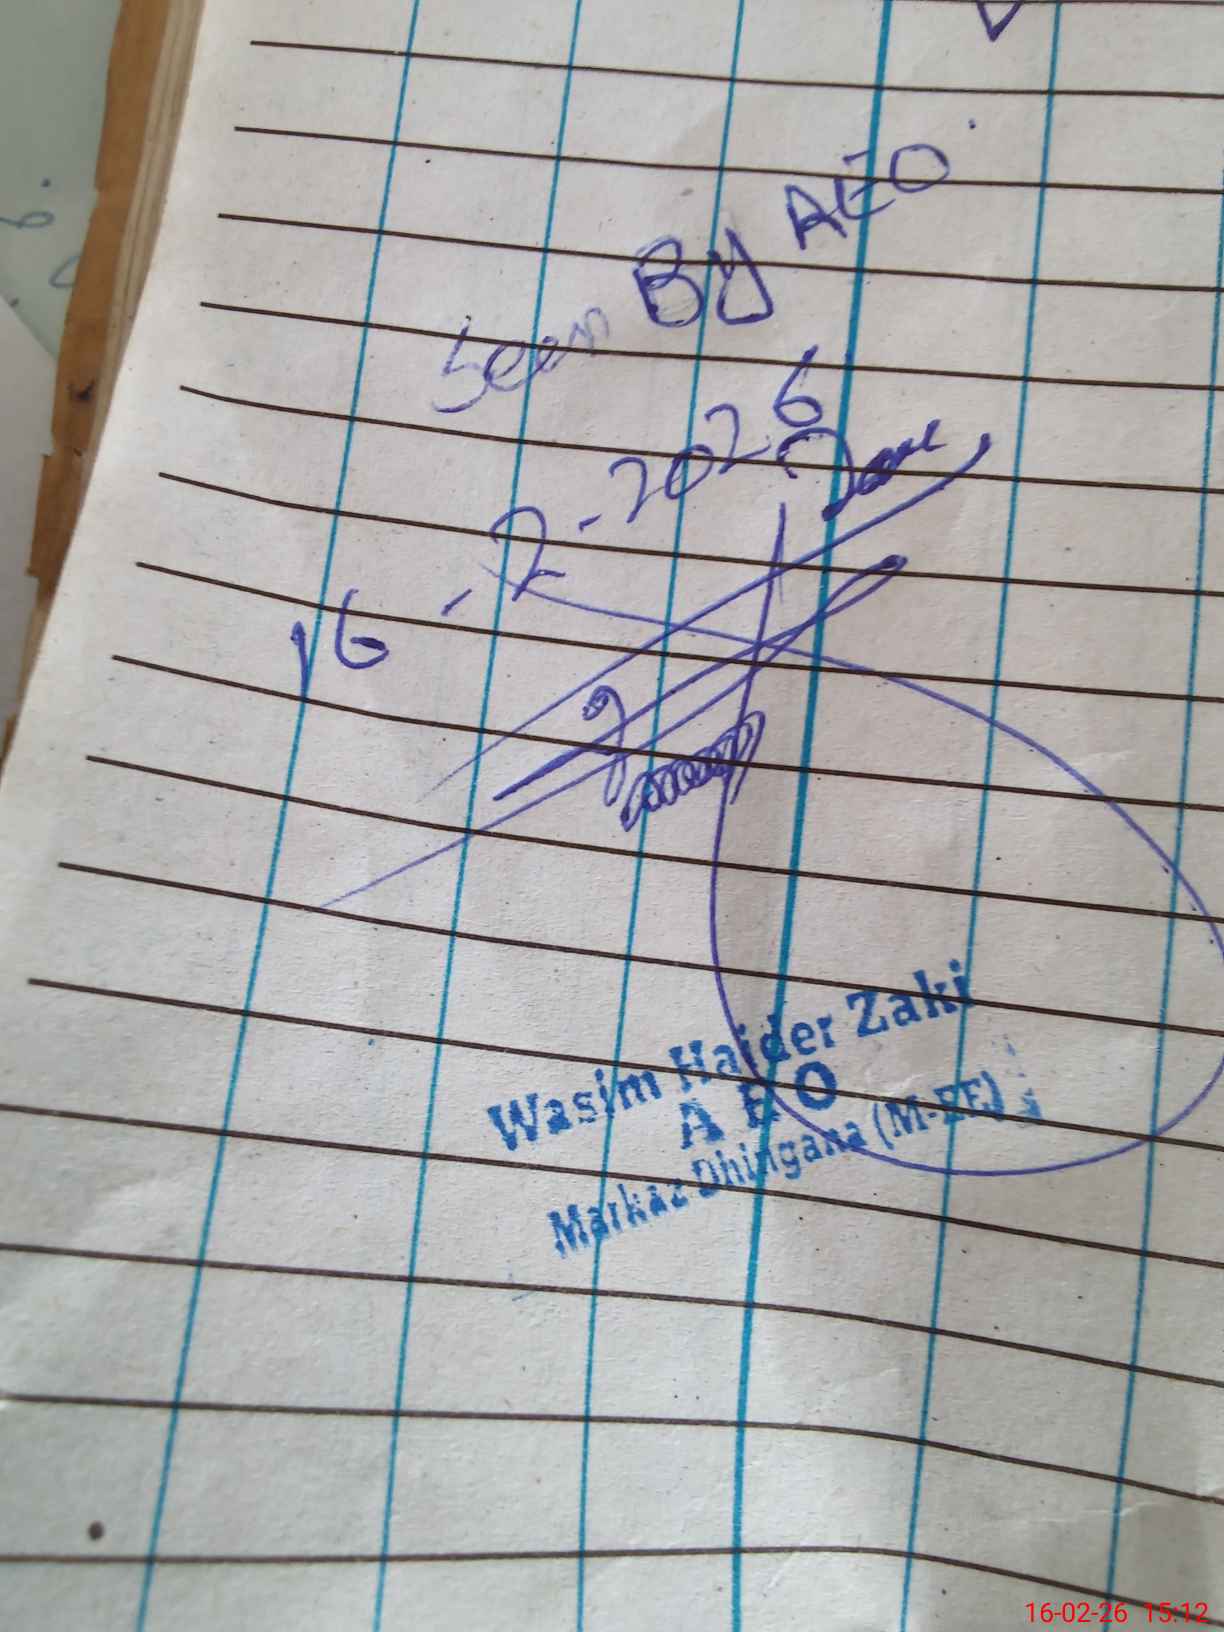 Seen By AEO
16-2-2026
Wasim Haider Zaki
AEO
Markaz Dhingana (M-EE)
16-02-26 15:12